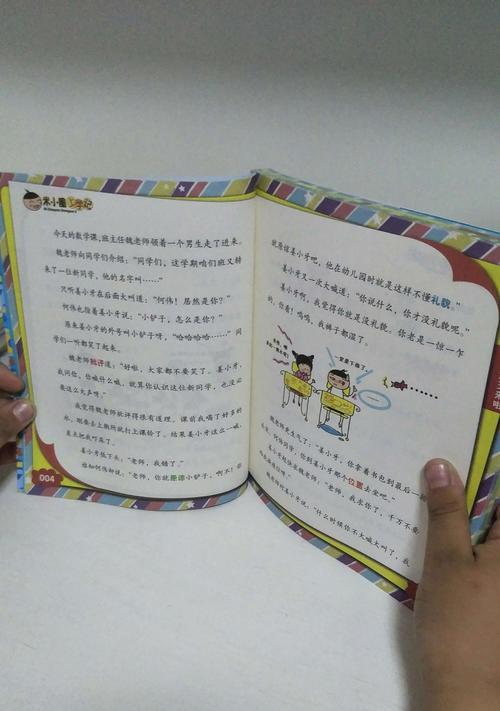 米小圈上学记
今天的数学课,班主任魏老师领着一个男生走了进来。
魏老师向同学们介绍:“同学们,这学期咱们班又转
来了一位新同学,他的名字叫……”
只听姜小牙在后面大叫道:“何伟!居然是你?”
何伟也指着姜小牙说:“小铲子,怎么是你?”
原来姜小牙的外号叫小铲子呀,“哈哈哈哈……”同
学们一听都笑了起来。
魏老师批评道:“好啦,大家都不要笑了。姜小牙,
我问你,你喊什么喊,就算你认识这位新同学,也没必
要这么大声呀。”
我觉得魏老师批评得很有道理,课前我喝了好多的
水,刚要去上厕所就打上课铃了。结果姜小牙这么一喊,
差点把我吓尿了。
姜小牙低下头:“老师,我错了。”
谁知何伟却说:“老师,你就原谅小铲子,啊不!你
004
就原谅姜小牙吧,他在幼儿园时就是这样不懂礼貌。”
姜小牙又一次大喊道:“你说什么,你才没礼貌呢。”
姜小牙啊,我觉得你就是没礼貌。你老是一惊一乍
的,你看!呜呜,我裤子都湿了。
一堂课下指了
魏老师更生气了:“姜小牙,你拿着书包到最后一排
去,何伟同学,你到姜小牙那个位置去坐吧。”
姜小牙赶快求魏老师:“老师,我求你了,千万不要
魏老师问姜小牙说:“什么时候你不大喊大叫了,我